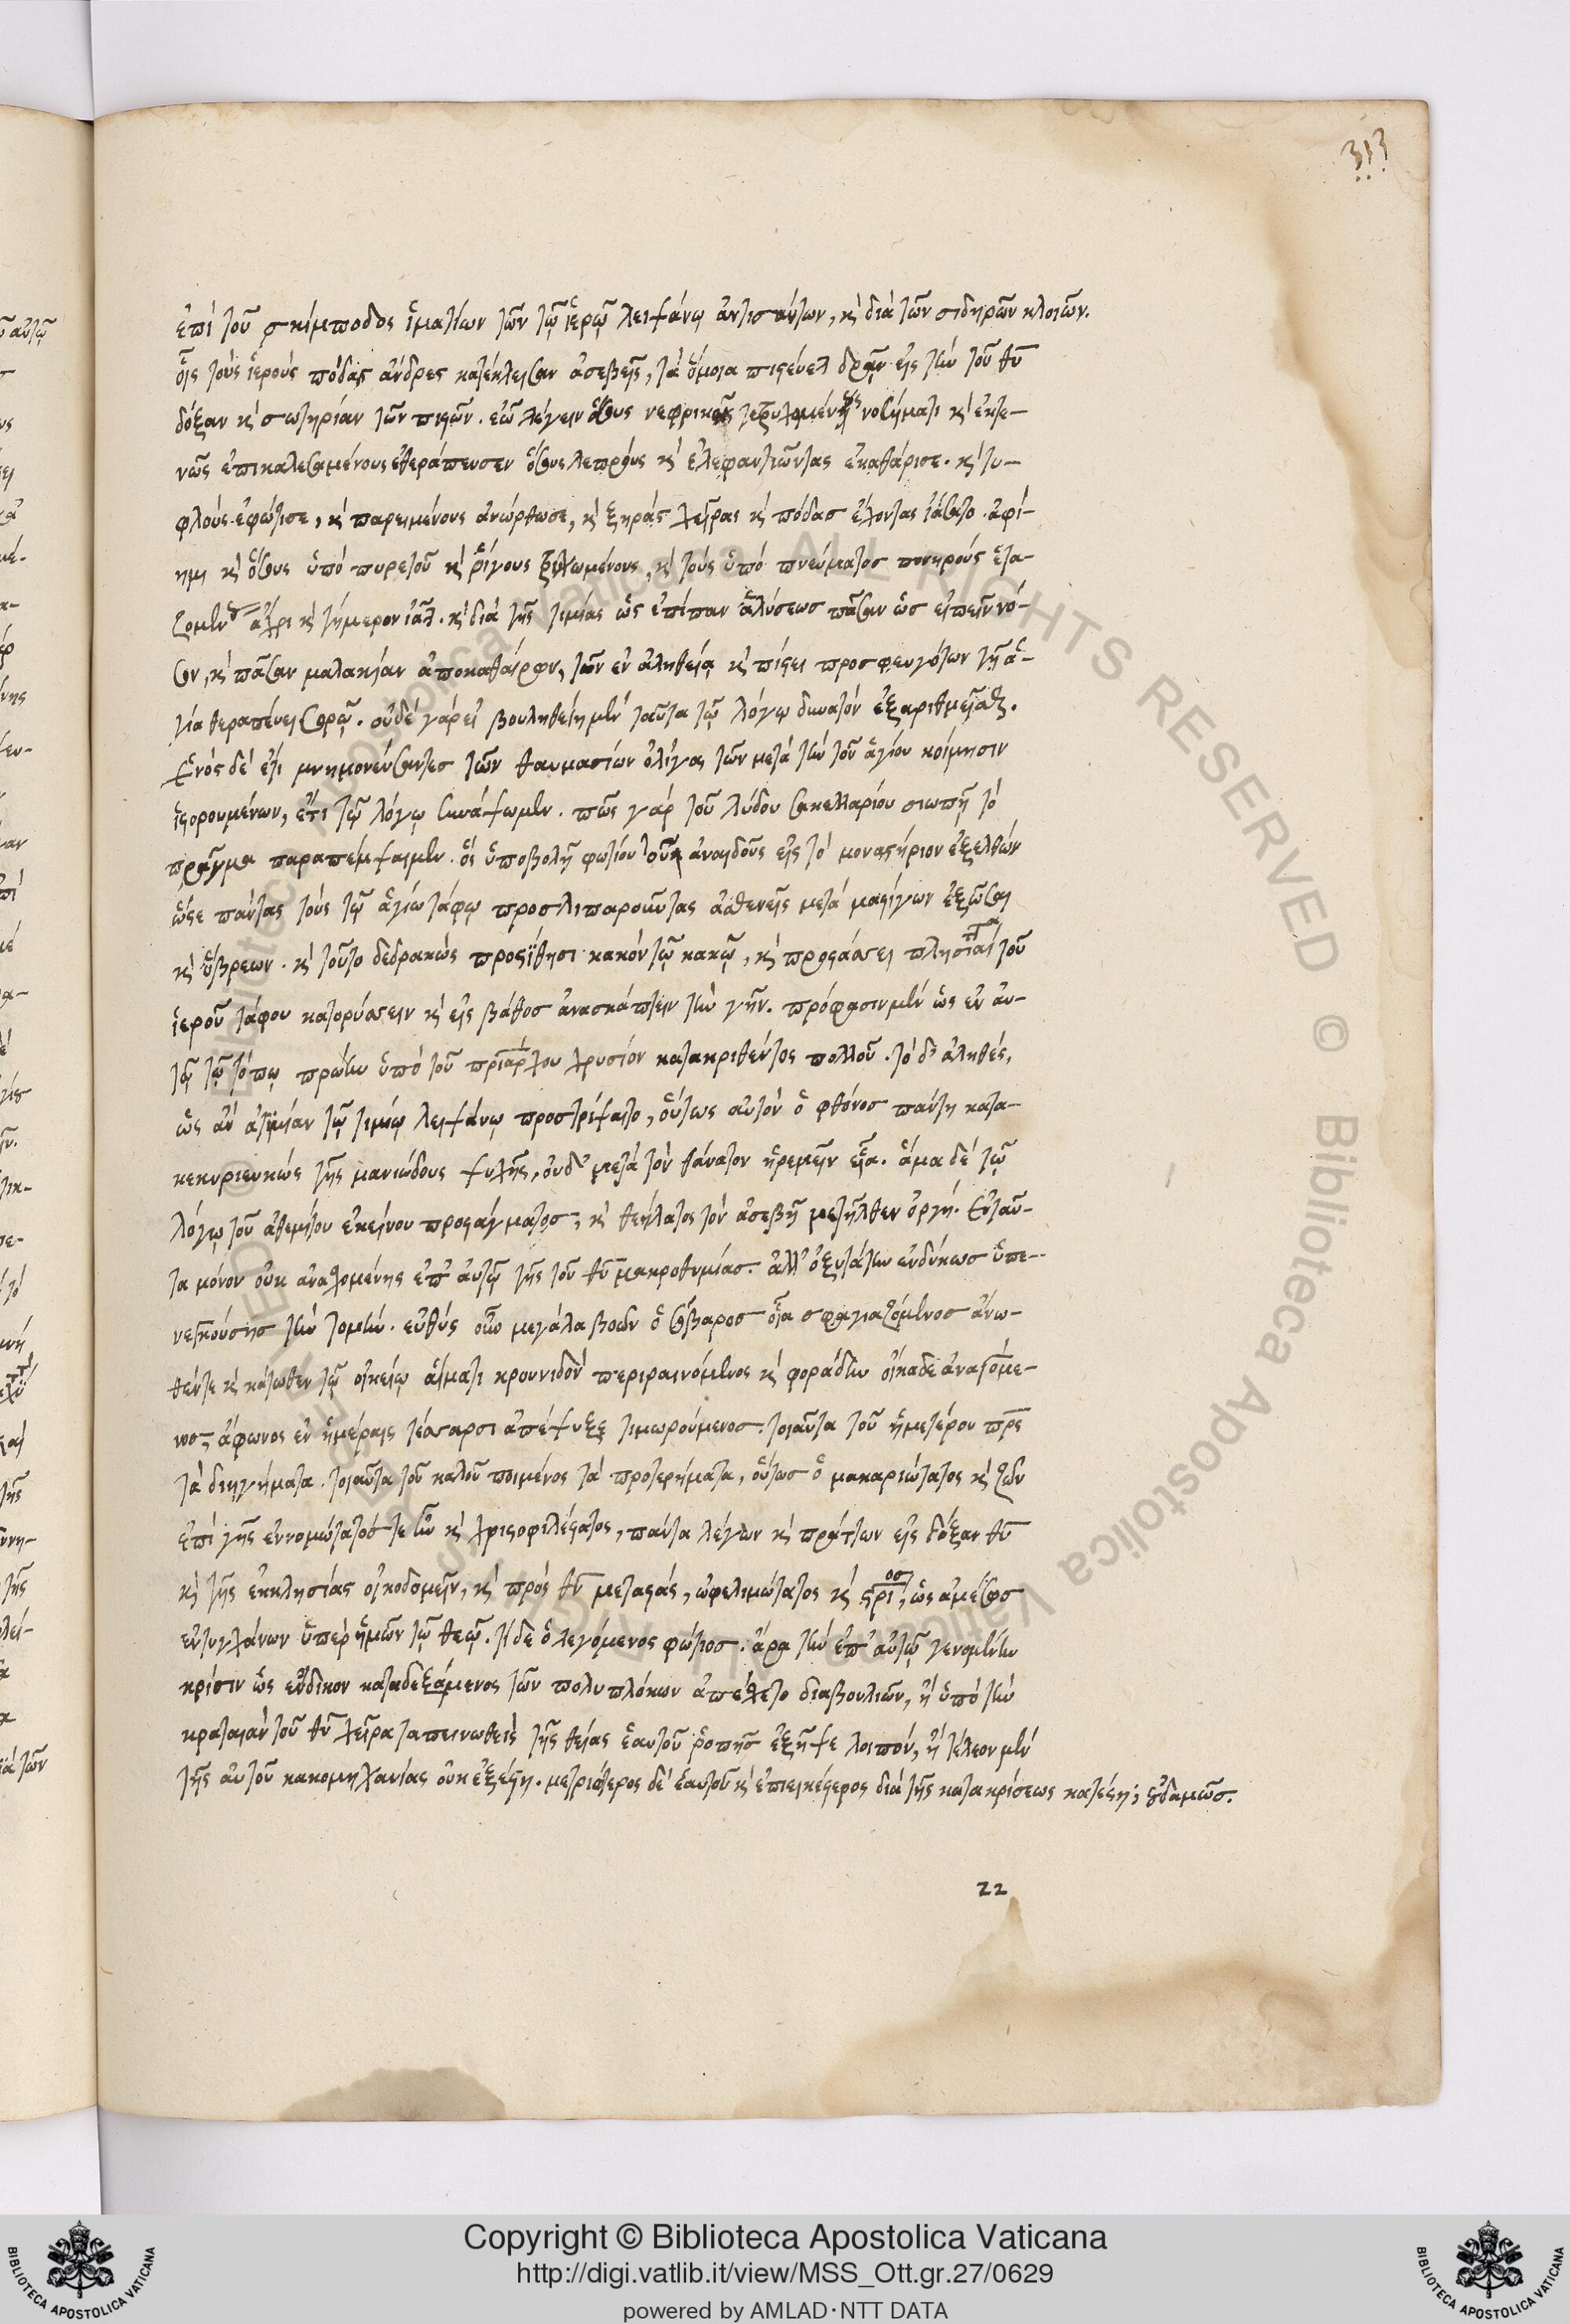 313
ἐπὶ τοῦ σκίμποδος ἱματίων τῶν τῷ ἱερῷ λειψάνῳ ἀντιστάντων, κὶ διὰ τῶν σιδηρῶν κλοιῶν.
οἷς τοὺς ἱεροὺς πόδας ἄνδρες κατέκλεισαν ἀσεβεῖς, τὰ ὅμοια πιστεύεται δρᾷν εἰς τὴν τοῦ θυ
δόξαν κὶ σωτηρίαν τῶν πιστῶν. ἐῶ λέγειν ὅσους νεφρικῷ νοσήματι κὶ ἐκτε-
νῶς ἐπικαλεσαμένους ἐθεράπευσεν ὅσους λεπροὺς κὶ ἐλεφαντιῶντας ἐκαθάρισε. κὶ τυ-
φλοὺς ἐφώτισε, κὶ παρειμένους ἀνώρθωσε, κὶ ξηρὰς χεῖρας κὶ πόδασ ἔχοντας ἰάσατο. ἀφί-
ημι κὶ ὅσους ὑπὸ πυρετοῦ κὶ ῥίγους, κὶ τοὺς ὑπὸ πνεύματοσ πονηροῦς ἐτα-
ζομένους ἄχρι κὶ τήμερον ἰᾶται. κὶ διὰ τῆς τιμίας ὡς ἐπίπαν ἁλύσεως πᾶσαν ὡσ εἰπεῖν νό-
σον, κὶ πᾶσαν μαλακίαν ἀποκαθαίρων, τῶν ἐν ἀληθείᾳ κὶ πίστει προσφευγόντων τῇ ἁ-
γίᾳ θεραπεύει σορῷ. οὐδὲ γὰρ εἰ βουληθείημεν ταῦτα τῷ λόγῳ δυνατὸν ἐξαριθμεῖσθαι.
Ἑνὸς δὲ ἔτι μνημονεύσαντεσ τῶν θαυμασίων ὀλίγα τῶν μετὰ τὴν τοῦ ἁγίου κοίμησιν
ἱστορουμένων, ἔτι τῷ λόγῳ συνάψωμεν. πῶς γὰρ τοῦ λύδου σακελλαρίου σιωπῇ τὸ
πρᾶγμα παραπέμψαιμεν. ὃς ὑποβολῇ φωτίου τοῦ ἀναιδοῦς εἰς τὸ μοναστήριον ἐξελθὼν
ὥστε πάντας τοὺς τῷ ἁγίῳ τάφῳ προσλιπαροῦντας ἀσθενεῖς μετὰ μαστίγων ἐξῶσαι
κὶ ὕβρεων. κὶ τοῦτο δεδρακὼς προστίθησι κακὸν τῷ κακῷ, κὶ προστάσσει πλησίον τοῦ
ἱεροῦ τάφου κατορύσσειν κὶ εἰς βάθοσ ἀνασκάπτειν τὴν γῆν. πρόφασιν μὲν ὡς ἐν αυ-
τῷ τῷ τόπῳ πρώην ὑπὸ τοῦ πριάρχου χρυσίον κατακριθέντος πολλοῦ. τὸ δ' ἀληθές,
ὡς ἂν ἀτιμίαν τῷ τιμίῳ λειψάνῳ προστρίψαιτο, οὕτως αὐτὸν ὁ φθόνοσ πάντη κατα-
κεκυριευκὼς τῆς μανιώδους ψυχῆς, οὐδὲ μετὰ τὸν θάνατον ἠρεμεῖν εἴα. ἅμα δὲ τῷ
λόγῳ τοῦ ἀθεμίτου ἐκείνου προστάγματοσ, κὶ θεήλατος τὸν ἀσεβῆ μετῆλθεν ὀργή. Ἐνταῦ-
τα μόνον οὐκ ἀνασχομένης ἐπ' αὐτῷ τῆς τοῦ θυ μακροθυμίασ. ἀλλ' ὀξυτάτην ἐνδίκωσ ὑπε-
νεγκούσησ τὴν τομήν. εὐθὺς οὖν μεγάλα βοῶν ὁ βάρβαροσ οἷα σφαγιαζόμενοσ ἄνω-
θέν τε κὶ κάτωθεν τῷ οἰκείῳ αἵματι κρουνιδὸν περιραινόμενος κὶ φοράδην οἴκαδε ἀναγόμε-
νος, ἄφωνος ἐν ἡμέραις τέσσαρσι ἀπέψυξε τιμωρούμενοσ. τοιαῦτα τοῦ ἡμετέρου πρς
τὰ διηγήματα. τοιαῦτα τοῦ καλοῦ ποιμένος τὰ προτερήματα, οὕτωσ ὁ μακαριώτατος κὶ ζῶν
ἐπὶ γῆς ἐννομώτατός τε ὢν κὶ χριστοφιλέστατος, πάντα λέγων κὶ πράττων εἰς δόξαν θυ
κὶ τῆς ἐκκλησίας οἰκοδομεῖν, κὶ πρὸς θν μεταστάς, ὠφελιμώτατος κὶ σριος, ὡς ἀμέσωσ
ἐντυγχάνων ὑπὲρ ἡμῶν τῷ θεῷ. τί δὲ ὁ λεγόμενος φώτιοσ. ἆρα τὴν ἐπ' αὐτῷ γενομένην
κρίσιν ὡς ἔνδικον καταδεξάμενος τῶν πολυπλόκων ἀπέσχετο διαβουλιῶν, ἢ ὑπὸ τὴν
κραταιὰν τοῦ θυ χεῖρα ταπεινωθεὶς τῆς θείας ἑαυτοῦ ῥοπῆσ ἐξῆψε λοιπόν, ἢ τέλεον μὲν
τῆς αὐτοῦ κακομηχανίας οὐκ ἐξέστη. μετριώτερος δὲ ἑαυτοῦ κὶ ἐπιεικέστερος διὰ τῆς κατακρίσεως κατέστη; οὐδαμῶσ.
22